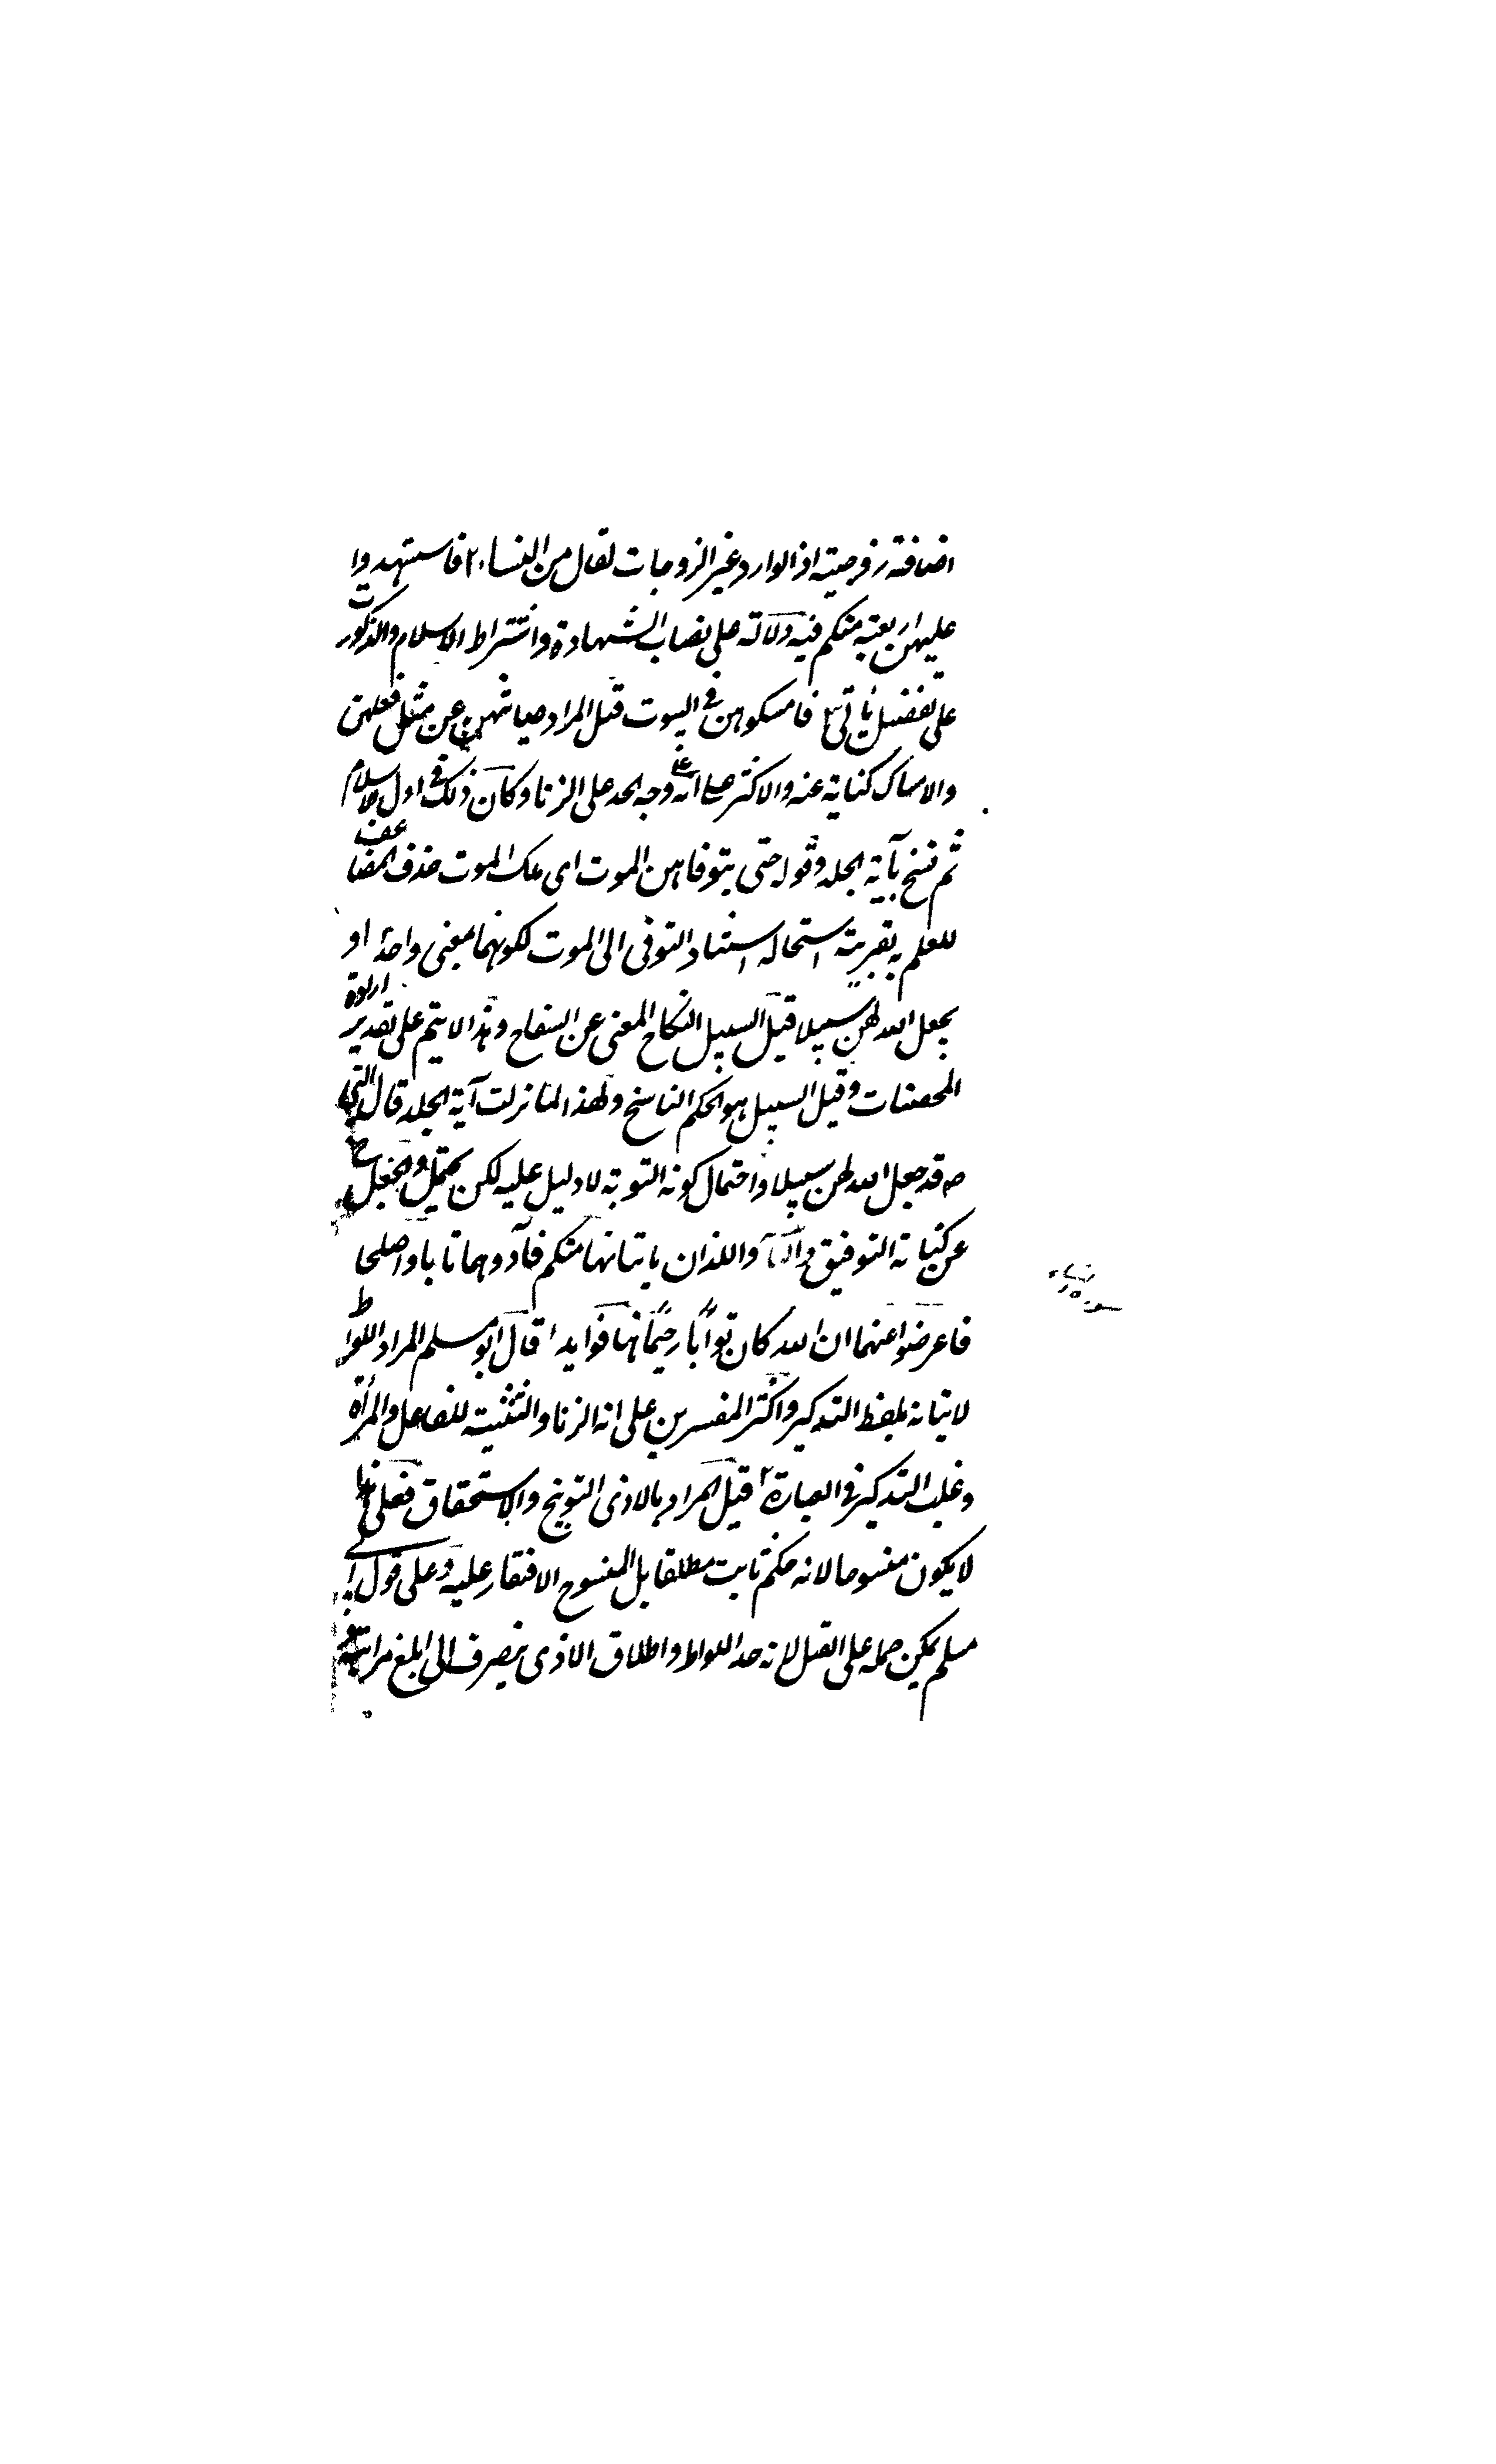 اضافة زوجية اذ لو اراد غير الزوجات لقال من النساء ٢ فاستشهدوا
عليهن اربعة منكم فيه دلالة على نصاب الشهادة واشتراط الاسلام والذكورت
على تفضيل ياتى ٣ فامسكوهن فى البيوت قيل المراد صيانتهن عن مثل فعلهن
والامساك كناية عنه والاكثر على انه وجه الحد على الزنا وكان ذلك فى اول الاسلام
ثم نسخ بآية الجلد وقوله حتى يتوفاهن الموت اى ملك الموت حذف المضاف
للعلم به بقرينة استحالة استناد التوفى الى الموت لكونهما بمعنى واحد او
يجعل الله لهن سبيلا قيل السبيل النكاح المغنى عن السفاح وهذا لا يتم على تقدير ارادة
المحصنات وقيل السبيل هو الحكم الناسخ ولهذا لما نزلت آية الجلد قال النبى
ص قد جعل الله لهن سبيلا واحتمال كونه التوبة لا دليل عليه لكن يحتمل والجعل ح
عن كناية التوفيق واللذان ياتيانها منكم فآذوهما تابا واصلحا
فاعرضوا عنهما ان الله كان توّابًا رحيمًا فيها فوايد ا قال ابو مسلم المراد اللواط
لاتيانه بلفظ التذكير واكثر المفسرين على انه الزنا والتثنية للفاعل والمرأة
وغلب التذكير فى العبارة ٢ قيل المراد بالاذى التوبيخ والاستحقاق فعلى هذا
لا يكون منسوخا لانه حكم ثابت مطلقا بل المنسوخ الاقتصار عليه وعلى قول ابى
مسلم يمكن حمله على القتل لانه حد اللواط واطلاق الاذى ينصرف الى ابلغ مراتبه